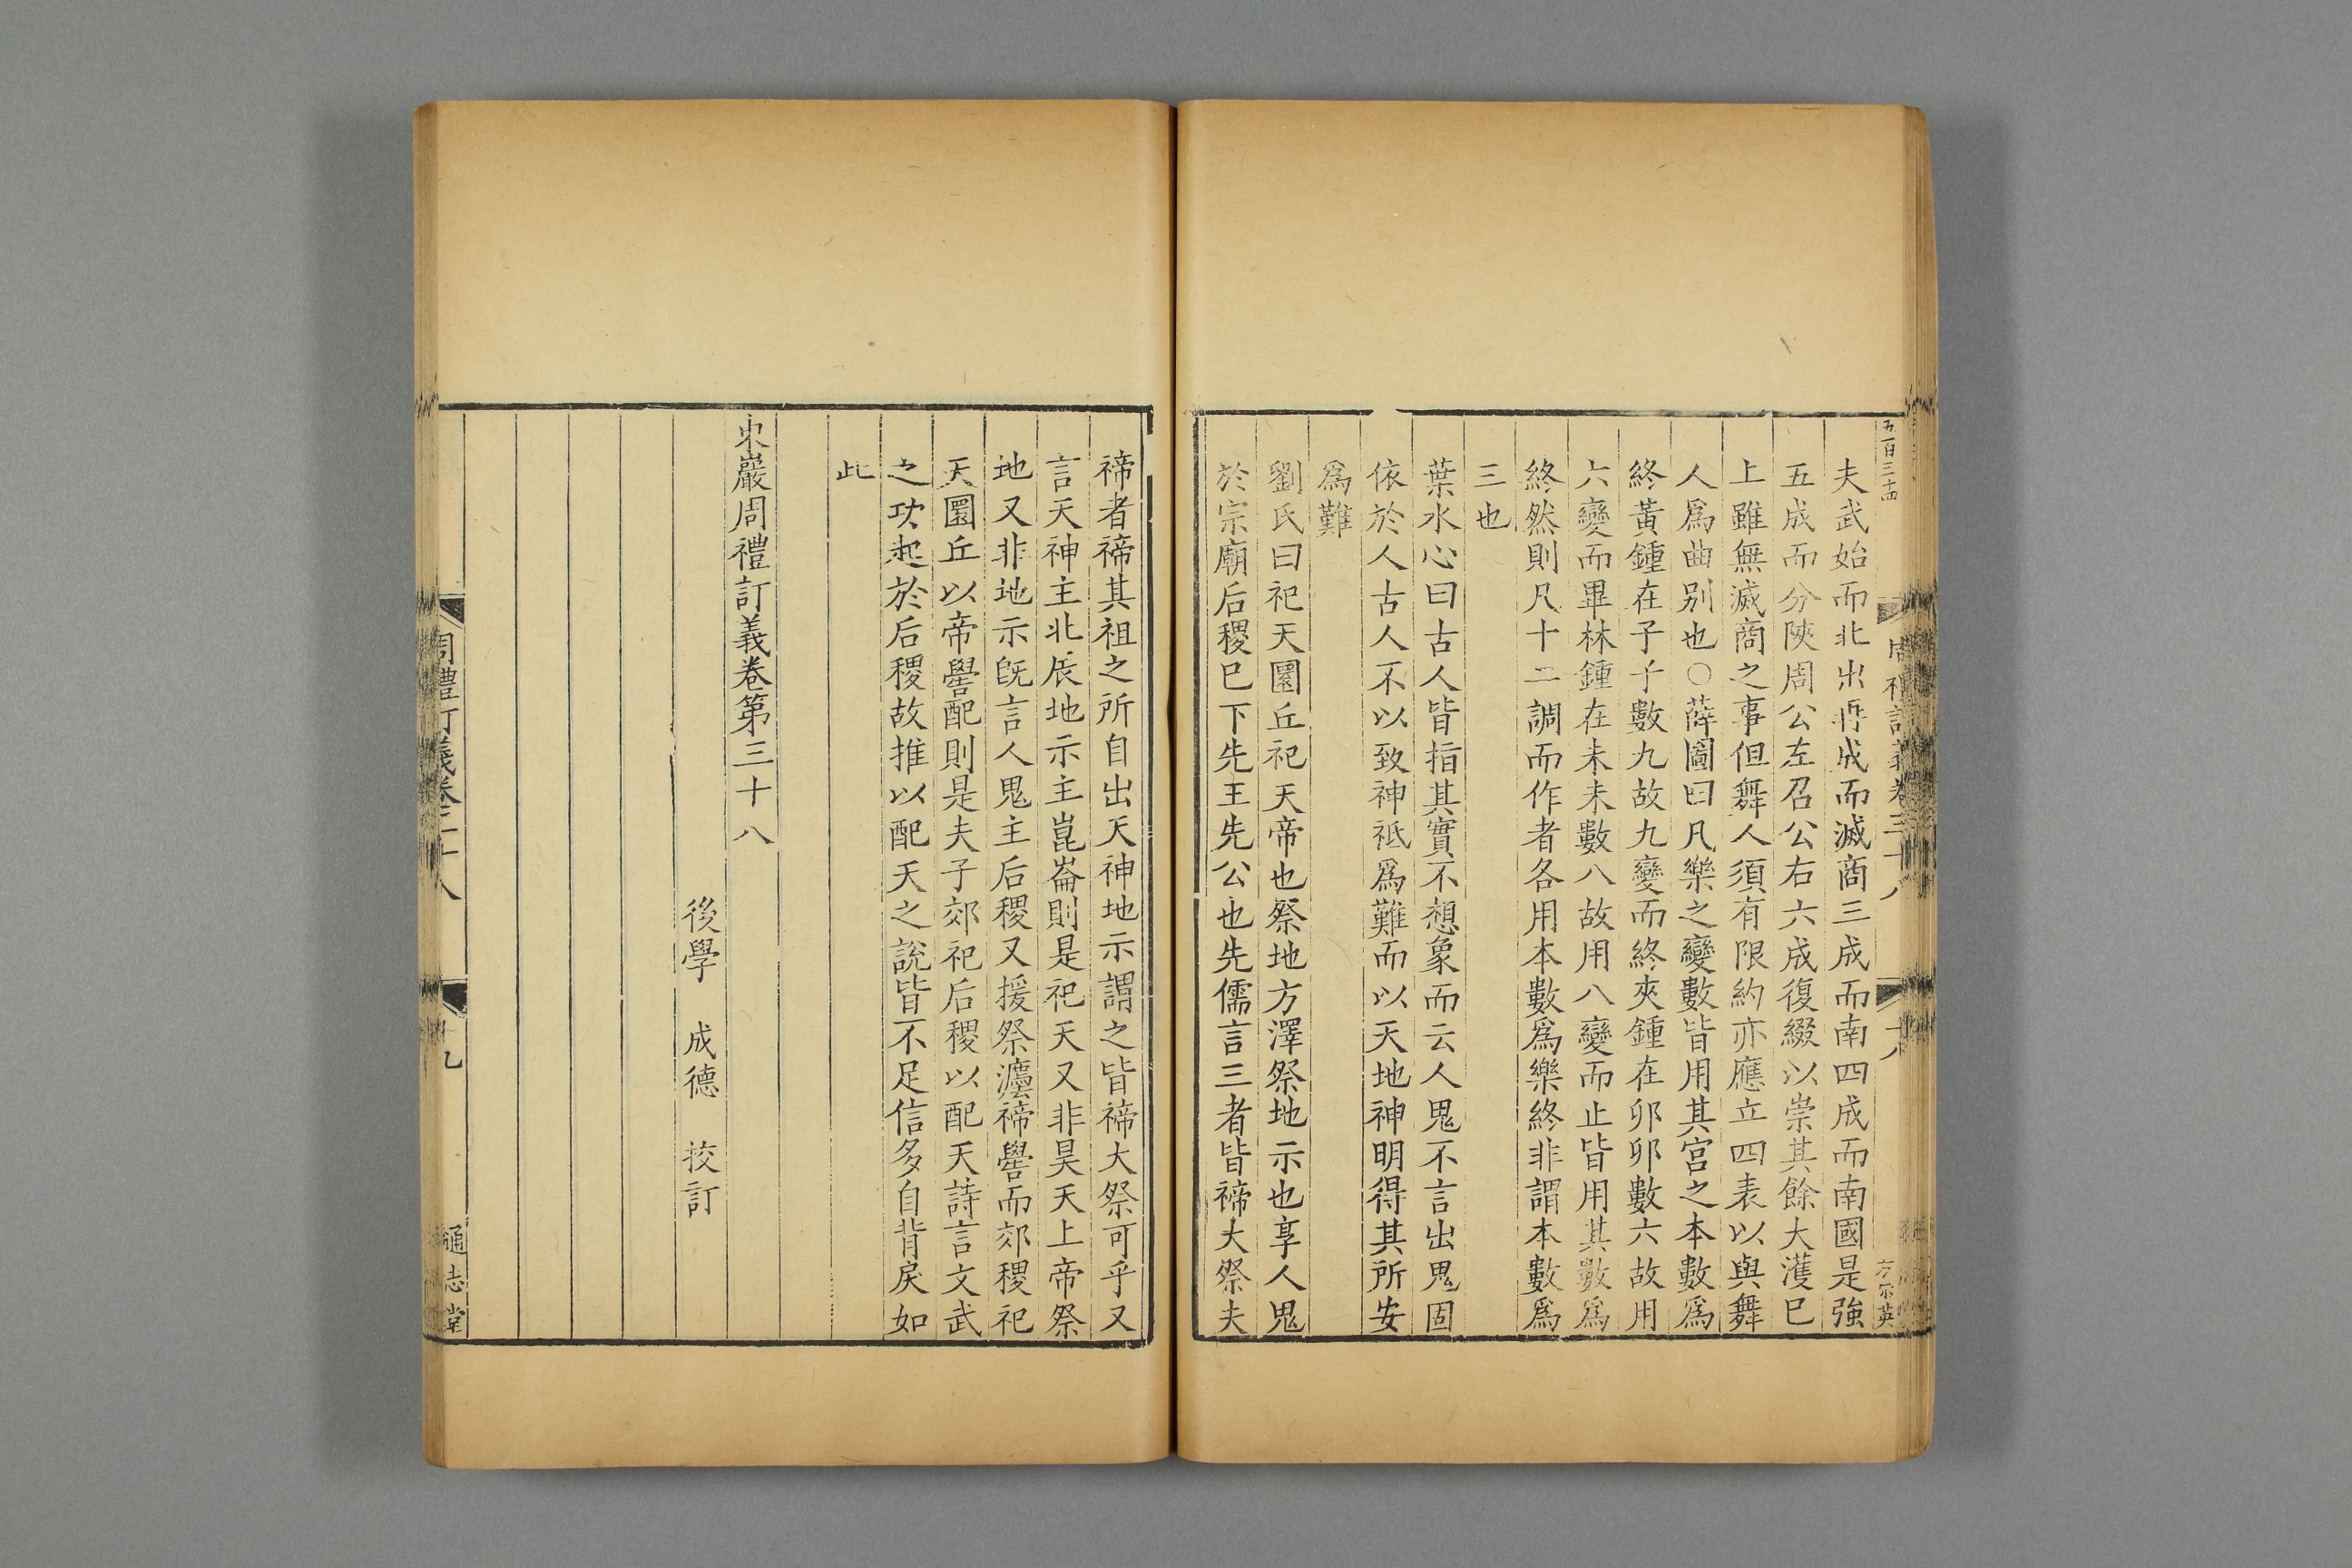 五百三十四
周禮訂義卷三十八
十八
夫武始而北出再成而滅商三成而南四成而南國是強
五成而分陝周公左召公右六成復綴以崇其餘大濩巳
上雖無滅商之事但舞人須有限約亦應立四表以與舞
人爲曲别也○薛圖曰凡樂之變數皆用其宫之本數爲
終黃鍾在子子數九故九變而終夾鍾在卯卯數六故用
六變而畢林鍾在未未數八故用八變而止皆用其數爲
終然則凡十二調而作者各用本數爲樂終非謂本數爲
三也
葉水心曰古人皆指其實不想象而云人鬼不言出鬼固
依於人古人不以致神祗爲難而以天地神明得其所安
爲難
劉氏曰祀天圜丘祀天帝也祭地方澤祭地示也享人鬼
於宗廟后稷巳下先王先公也先儒言三者皆禘大祭夫
禘者禘其祖之所自出天神地示謂之皆禘大祭可乎又
言天神主北辰地示主崑崙則是祀天又非昊天上帝祭
地又非地示旣言人鬼主后稷又援祭灋禘嚳而郊稷祀
天圜丘以帝嚳配則是夫子郊祀后稷以配天詩言文武
之功起於后稷故推以配天之說皆不足信多自背戾如
此
東巖周禮訂義卷第三十八
後學 成德 挍訂
周禮訂義卷三十八
十九
通志堂